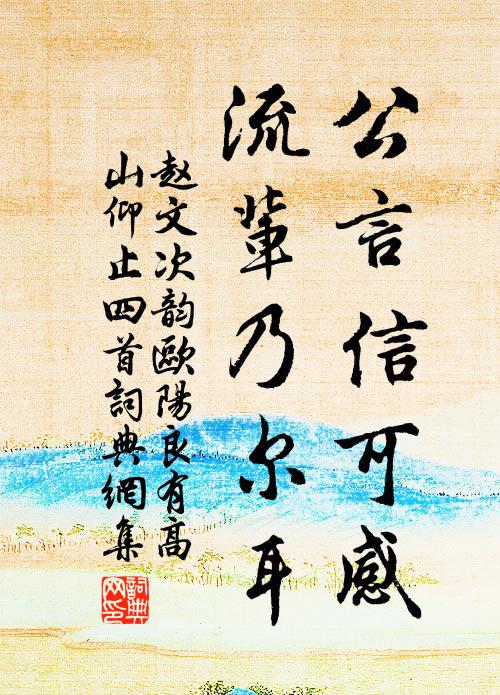 公言信可感
流輩乃尔耳
赵文次韵歐陽良有高
山仰止四首詞典網集